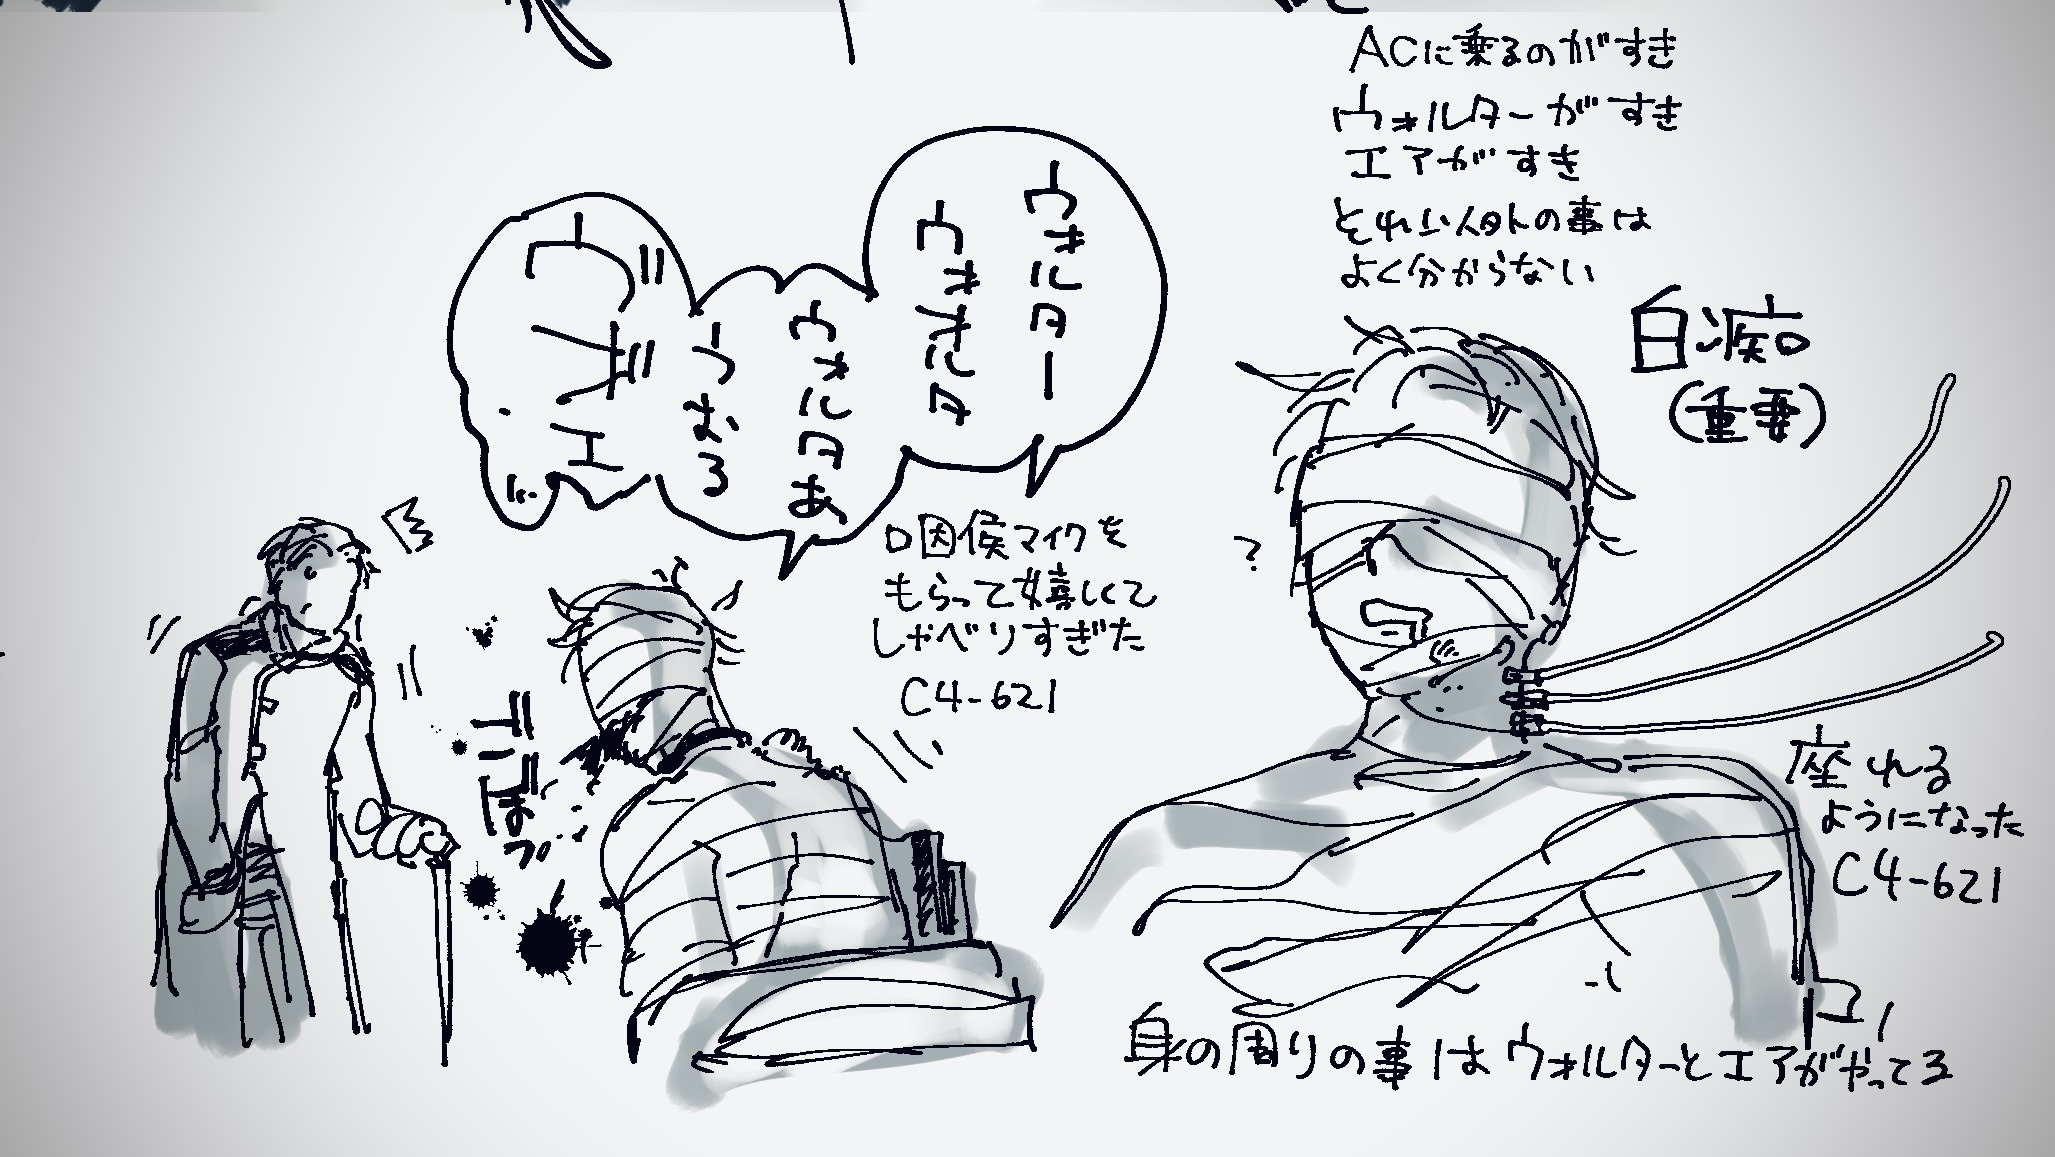 ACに乗るのがすき
ウォルターがすき
エアがすき
それ以外の事は
よく分からない
白痴
(重要)
ウォルター
ウォルタ
ウォルタあ
うおろ
ヴ
エ
口因侯マイクを
もらって嬉しくて
しゃべりすぎた
C4-621
?
座れる
ようになった
C4-621
身の周りの事はウォルターとエアがやってる